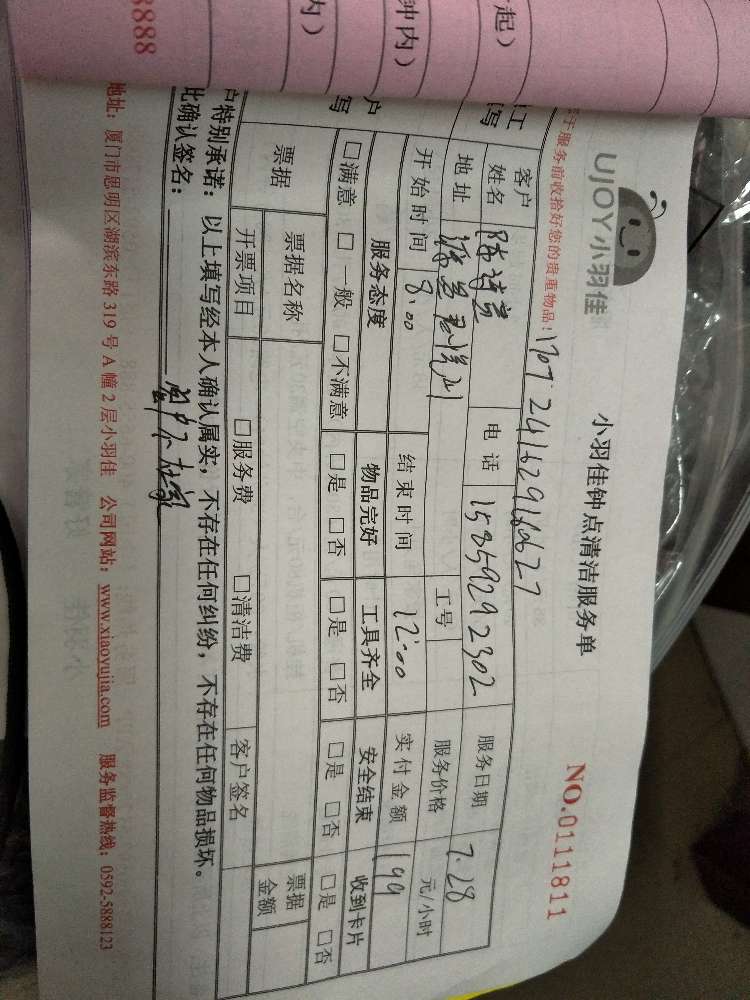 UJOY小羽佳
小羽佳钟点清洁服务单
NO.0111811
于服务前收拾好您的贵重物品!
客户姓名
电话 15859292302
服务日期 7.28
地址
工号
服务价格 元/小时
开始时间 8:00
结束时间 12:00
实付金额 199
服务态度 物品完好 工具齐全 安全结束 收到卡片
□满意 □一般 □不满意 □是 □否 □是 □否 □是 □否 □是 □否
票据 票据名称 票据金额
开票项目 □服务费 □清洁费 客户签名
户特别承诺:以上填写经本人确认属实,不存在任何纠纷,不存在任何物品损坏。
比确认签名:
地址:厦门市思明区湖滨东路 319 号 A 幢 2 层小羽佳 公司网站:www.xiaoyujia.com 服务监督热线:0592-5888123
起)
钟内)
内)
8888
工
写
户
写